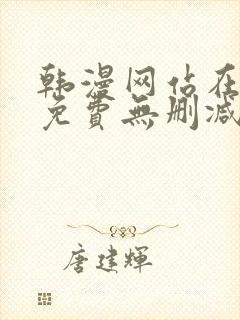 韩漫网站在
免費無删减
唐建輝